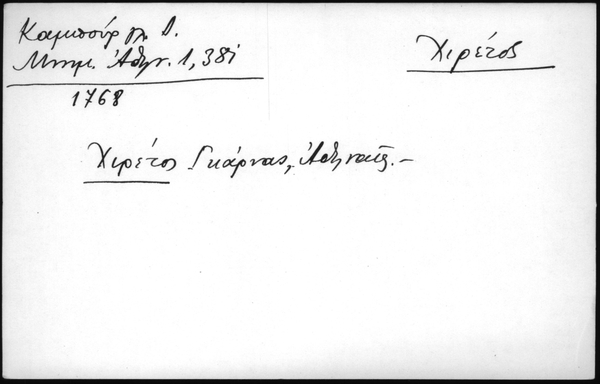 Καμπούρ γλ. Δ.
Μνημ. Ἀθην. 1, 381
Χιρέτος
1768
Χιρέτος Γκάρνας, Ἀθηναῖος.–